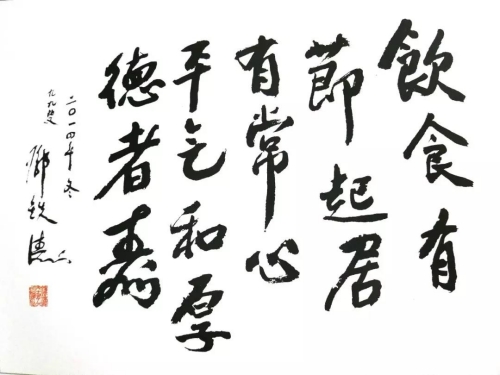 飲食有
節起居
有常心
平气和厚
德者寿
二〇一四年冬
九九叟
鄧铁涛